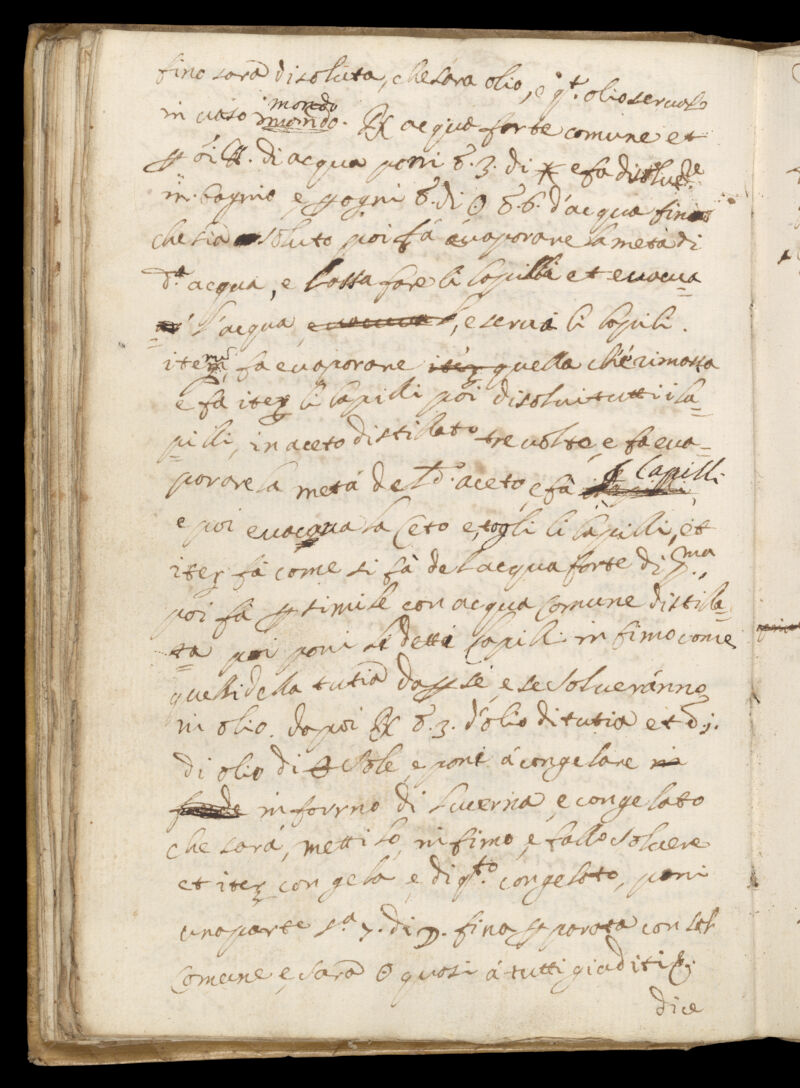 fino sarà disoluta, che sara olio, e q.t olio servalo
in vaso mondo. ℞ acqua forte comune et
di acqua poni ℥. 3. di e fa disolve.re
in bagnio, e ogni ℥. di ☉ ℥ 6. d'acqua fino
che sia soluto, poi fà evaporare la metà di
d.a acqua, e lassa fare li lapilli et evacua
l'acqua, e serva li lapili.
iter, fa evaporare quella ch'è rimassa
e fa iter li lapilli poi disolvi tutti i la=
pilli, in aceto distillato tre volte, e fa eva=
porare la metà del d.o aceto, e fà lapilli
e poi evacua la ceto e, togli li lapilli, et
iter fà come si fà del acqua forte di p.ma
poi fà simile con acqua comune distilla=
ta poi poni li detti lapili in fimo come
quelli della tutia da sé, e se solveranno
in olio. da poi ℞ ℥. 3. d'olio di tutia et ℥ j.
di olio di Sole, e poni à congelare
in forno di lucerna, e congelato
che sarà, mettilo, in fimo, e fallo solvere
et iter congela, e di q.to congelato, poni
una parte s.a 7. di ☽. fina parata con sal
comune e, sarà ☉ quasi à tutti giuditij
dice